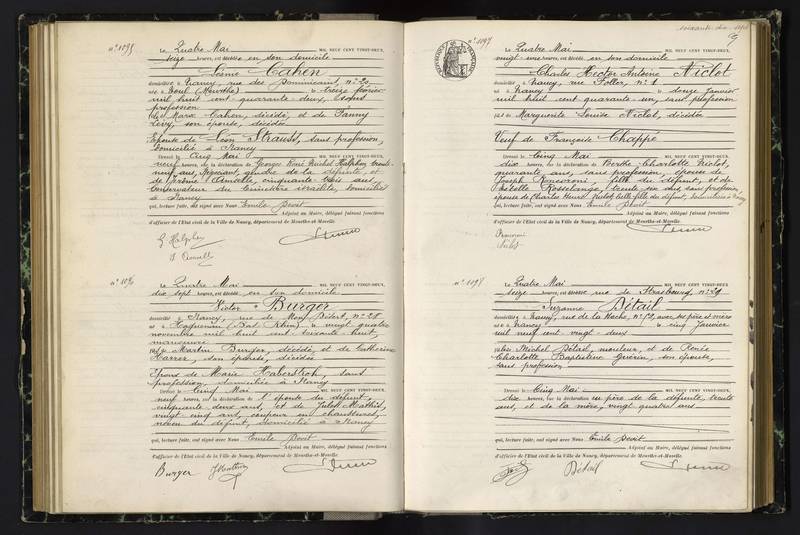 n° 1095
Le Quatre Mai MIL NEUF CENT VINGT-DEUX,
seize heures, est décédée en son domicile
Cahen
domiciliée à Nancy, rue des Dominicains, n° 20
née à Toul (Meurthe) le treize février
mil huit cent quarante deux, sans
profession
fille de Marx Cahen, décédé, et de Fanny
Lévy, son épouse, décédée
Epouse de Léon Strauss, sans profession,
domicilié à Nancy
Dressé le Cinq Mai MIL NEUF CENT VINGT-DEUX,
neuf heures, sur la déclaration de Georges René Michel Halphen,
neuf ans, Négociant, gendre de la défunte, et
de Jérôme cinquante trois ans,
Conservateur du Cimetière israélite, domiciliés
à Nancy
qui, lecture faite, ont signé avec Nous Emile Devit
Adjoint au Maire, délégué faisant fonctions
d'officier de l'Etat civil de la Ville de Nancy, département de Meurthe-et-Moselle.
G Halphen
n° 1096
Le Quatre Mai MIL NEUF CENT VINGT-DEUX,
dix sept heures, est décédé en son domicile
Victor Burger
domicilié à Nancy, rue de Mon Désert, n° 28
né à Haguenau (Bas Rhin) le vingt quatre
novembre mil huit cent soixante huit,
manoeuvre
fils de Martin Burger, décédé, et de Catherine
Harrer, son épouse, décédée
Epoux de Marie Haberstroh, sans
profession, domiciliée à Nancy
Dressé le Cinq Mai MIL NEUF CENT VINGT-DEUX,
neuf heures, sur la déclaration de l'épouse du défunt,
cinquante deux ans, et de Jules Mathis,
vingt cinq ans, coupeur en chaussures,
neveu du défunt, domicilié à Nancy
qui, lecture faite, ont signé avec Nous Emile Devit
Adjoint au Maire, délégué faisant fonctions
d'officier de l'Etat civil de la Ville de Nancy, département de Meurthe-et-Moselle.
Burger
n° 1097
Le Quatre Mai MIL NEUF CENT VINGT-DEUX,
vingt une heures, est décédé en son domicile
Charles Hector Antoine Niclot
domicilié à Nancy, rue Foller, n° 1
né à Nancy le douze janvier
mil huit cent quarante un, sans profession
fils de Marguerite Louise Niclot, décédée
Veuf de Françoise Chappé
Dressé le Cinq Mai MIL NEUF CENT VINGT-DEUX,
dix heures, sur la déclaration de Berthe Charlotte Niclot,
quarante ans, sans profession, épouse de
Joseph fille du défunt, et de
Rosselange, trente six ans, sans profession,
épouse de Charles Henri Niclot, belle fille du défunt, domiciliées à Nancy
qui, lecture faite, ont signé avec Nous Emile Devit
Adjoint au Maire, délégué faisant fonctions
d'officier de l'Etat civil de la Ville de Nancy, département de Meurthe-et-Moselle.
Niclot
n° 1098
Le Quatre Mai MIL NEUF CENT VINGT-DEUX,
seize heures, est décédée rue de Strasbourg, n° 29
Suzanne Détail
domiciliée à Nancy, rue de la Hache, n° 19, avec ses père et mère
née à Nancy le cinq Janvier
mil neuf cent vingt deux
fille de Michel Détail, mouleur, et de Renée
Charlotte Baptistine Guérin, son épouse,
sans profession
Dressé le Cinq Mai MIL NEUF CENT VINGT-DEUX,
dix heures, sur la déclaration du père de la défunte, trente
ans, et de la mère, vingt quatre ans
qui, lecture faite, ont signé avec Nous Emile Devit
Adjoint au Maire, délégué faisant fonctions
d'officier de l'Etat civil de la Ville de Nancy, département de Meurthe-et-Moselle.
Détail